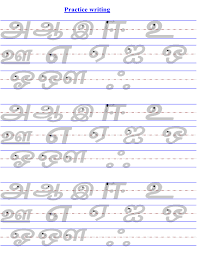 Practice writing
அ ஆ இ ஈ உ
ஊ எ ஏ ஐ ஒ
ஓ ஔ ஃ
அ ஆ இ ஈ உ
ஊ எ ஏ ஐ ஒ
ஓ ஔ ஃ
அ ஆ இ ஈ உ
ஊ எ ஏ ஐ ஒ
ஓ ஔ ஃ